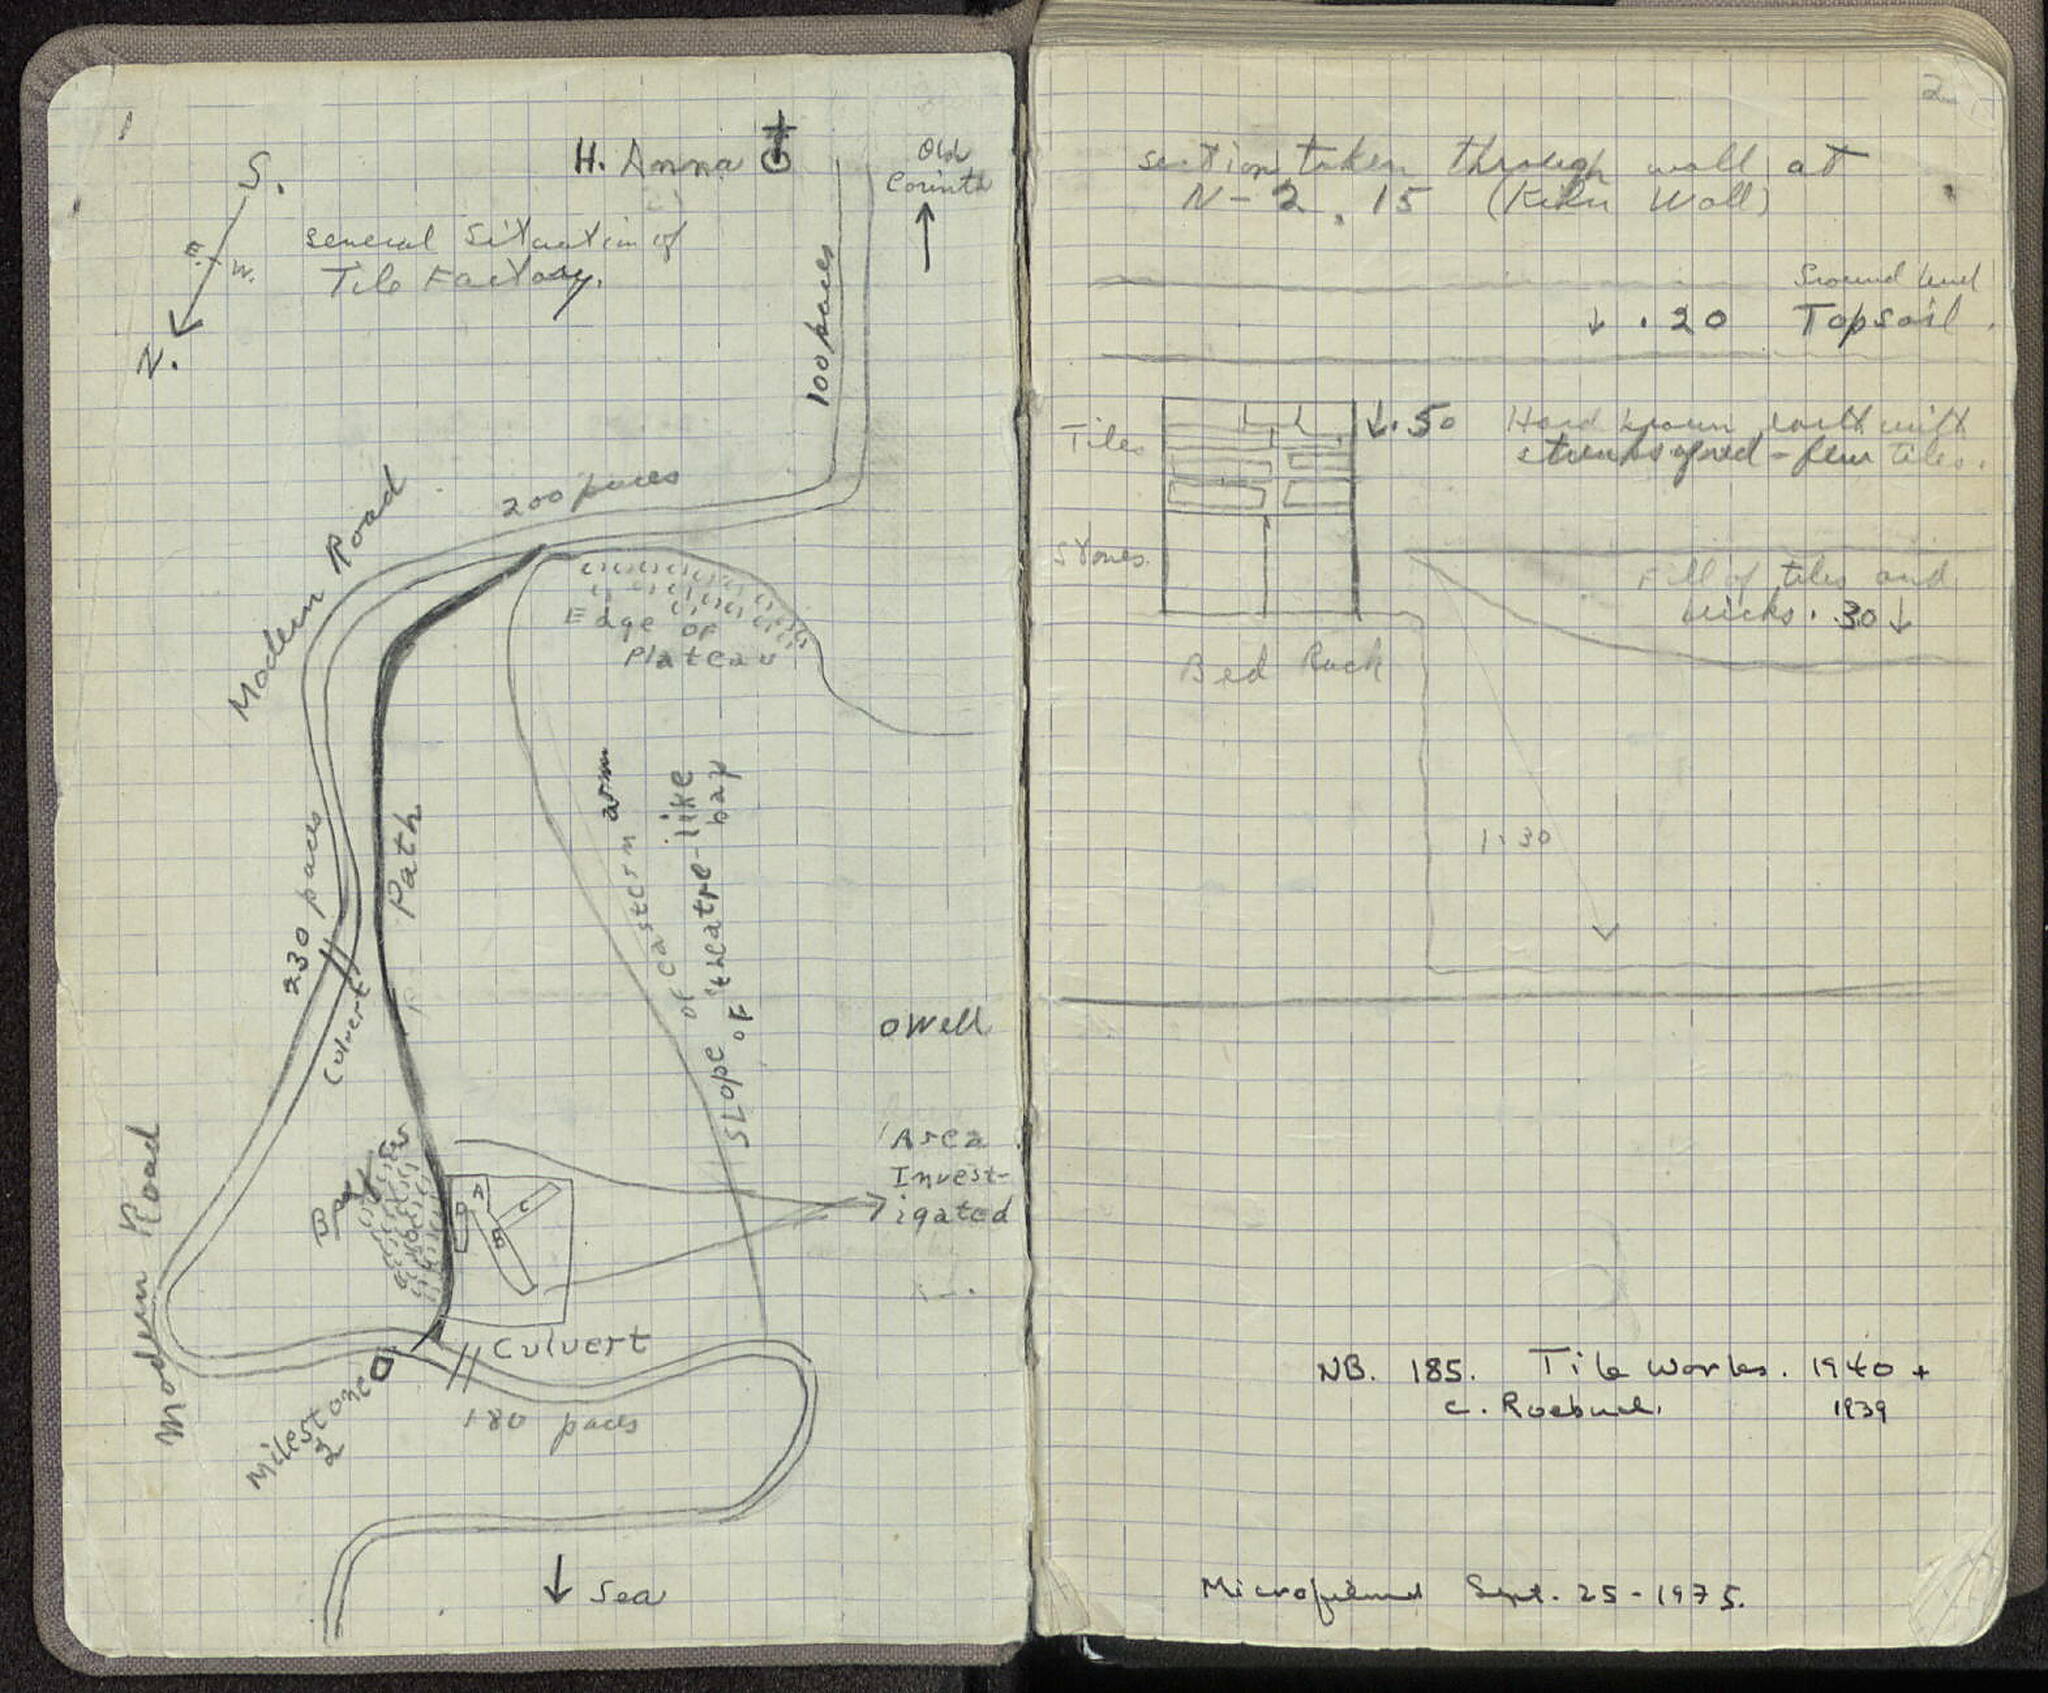 1
S.
E.
W.
N.
H. Anna
Old
Corinth
General Situation of
Tile Factory.
100 paces
200 paces
Modern Road
Edge of
Plateau
Path
230 paces
Culvert
Slope of eastern arm
of "theatre-like
bay
o Well
Area
Invest-
igated
A
B
C
D
Modern Road
Culvert
Milestone
2
180 paces
↓ Sea
2
section taken through wall at
N-2.15 (Kiln Wall)
Ground level
↓ .20 Topsoil.
Tiles
↓.50 Hard brown earth with
- few tiles.
Stones
Fill of tiles and
bricks. .30 ↓
Bed Rock
1.30
NB. 185. Tile Works. 1940 +
C. Roebuck. 1939
Microfilmed Sept. 25-1975.